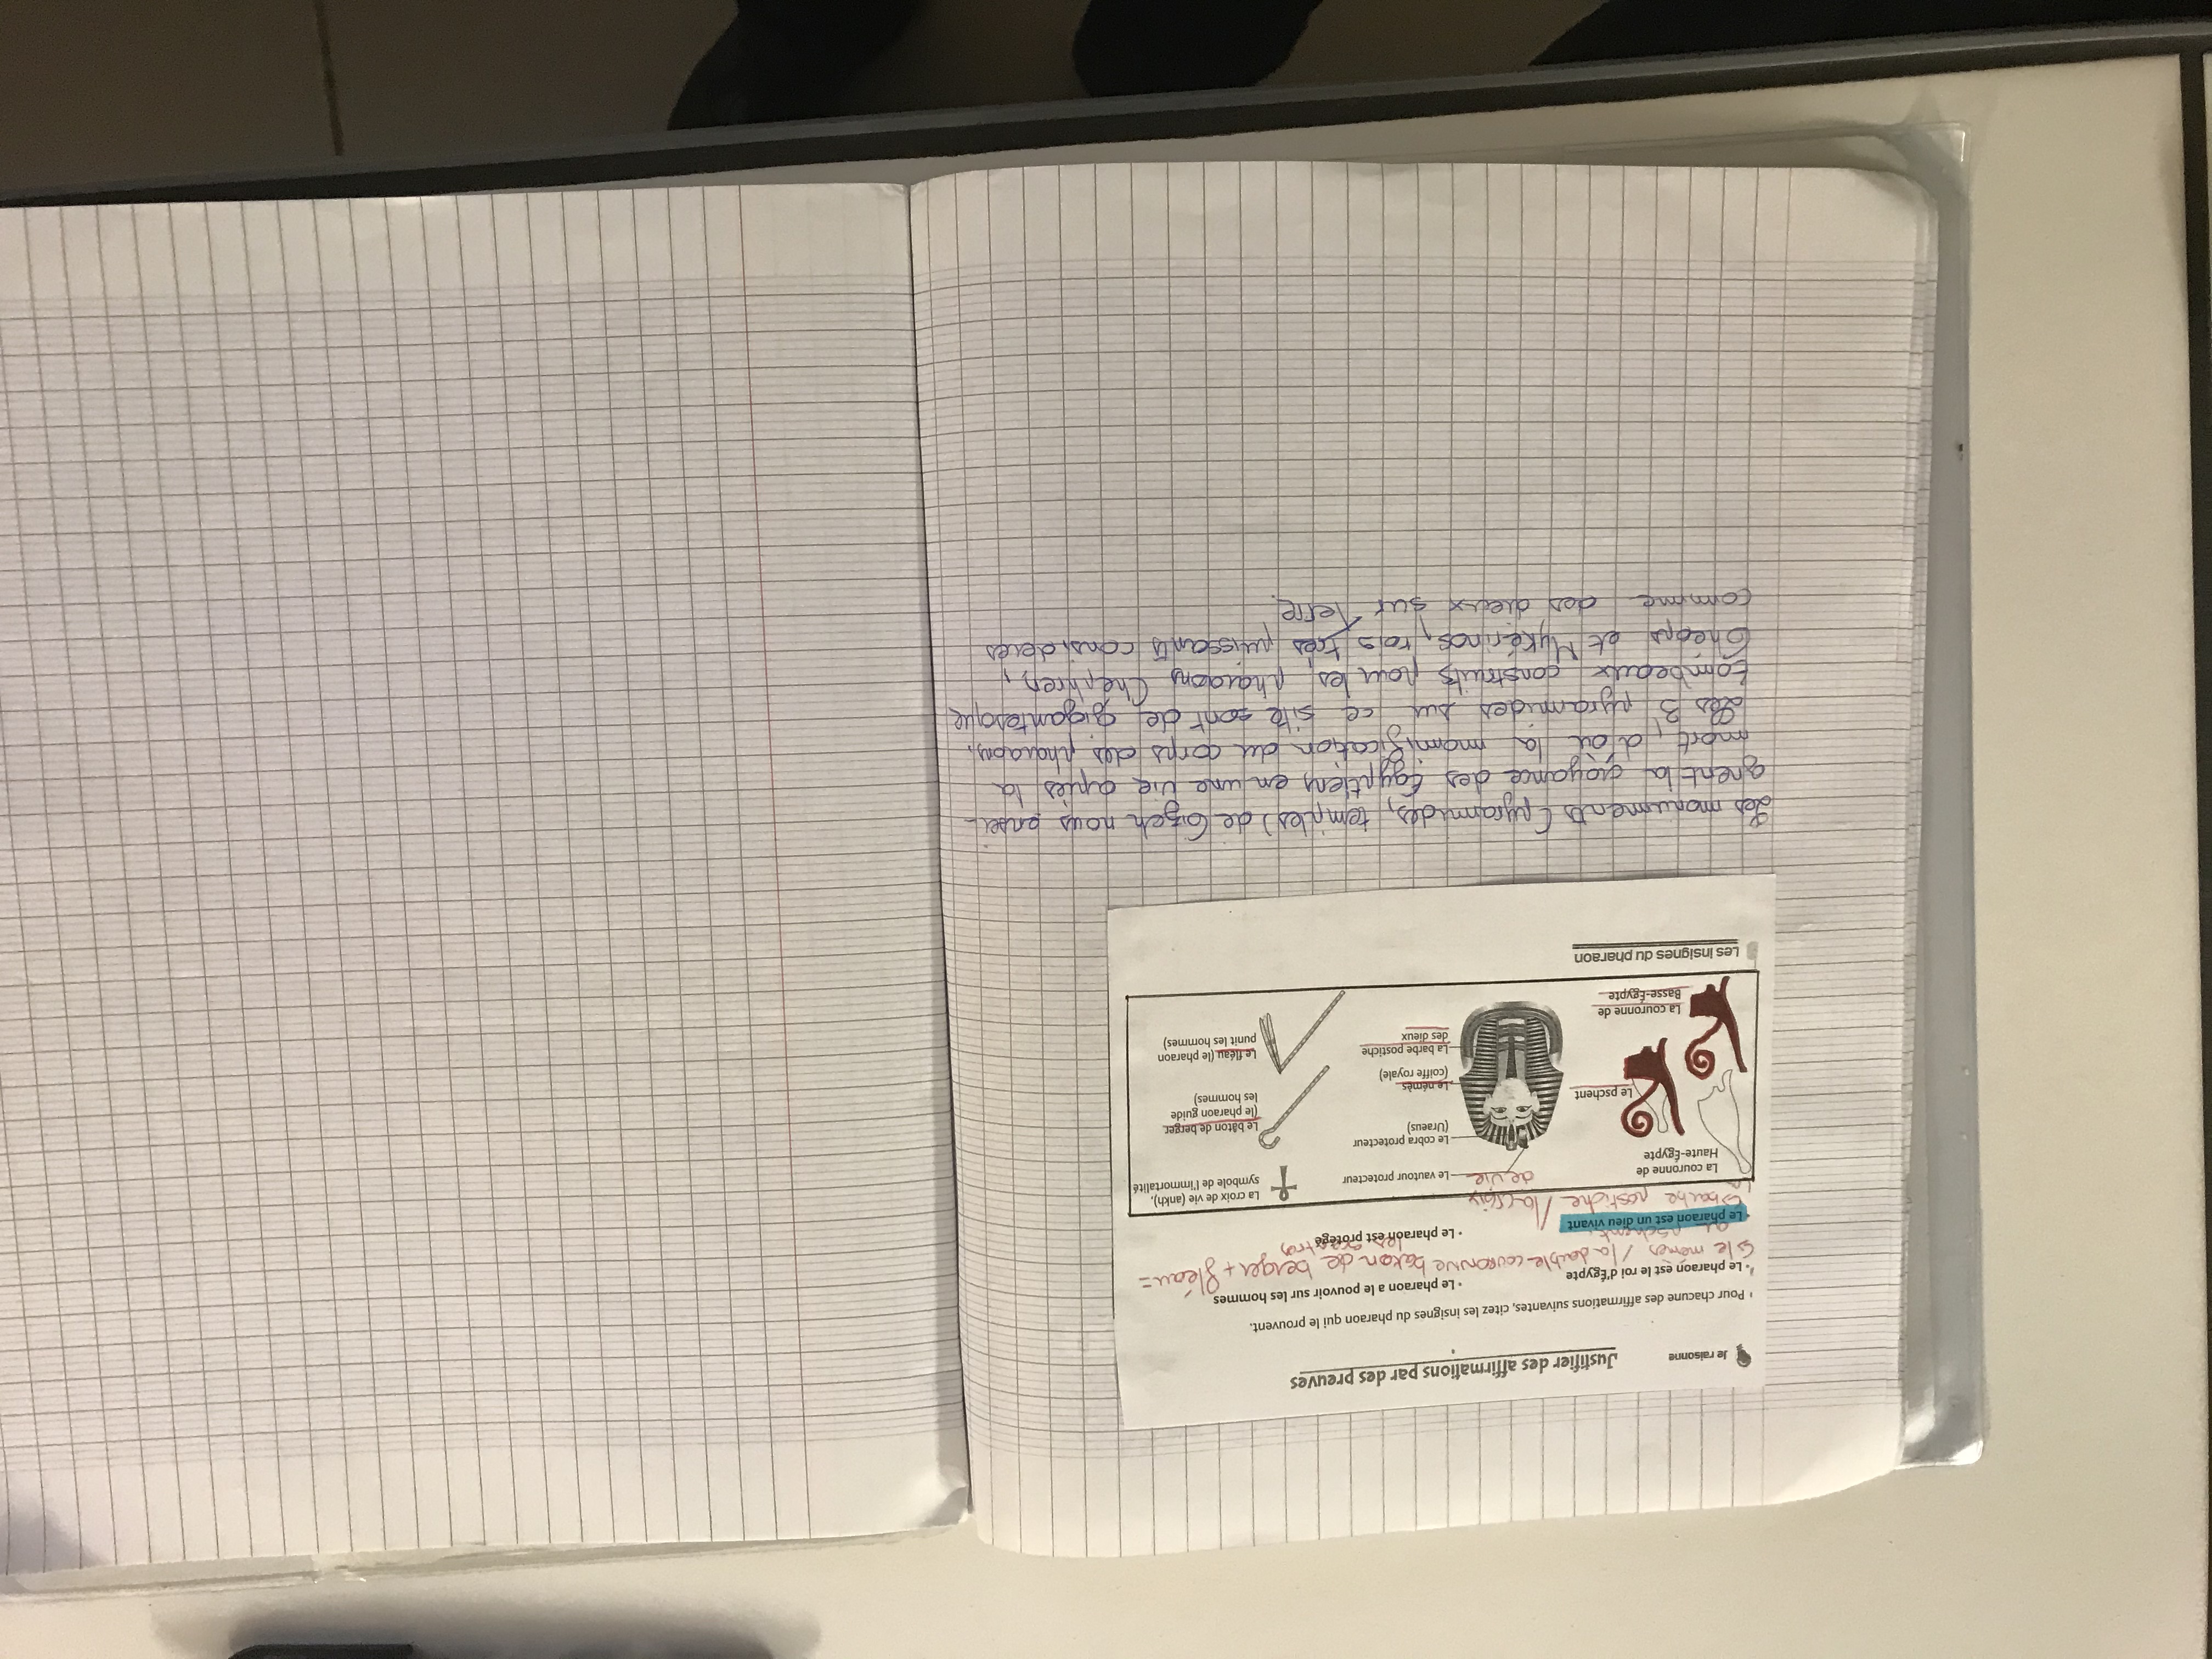 Je raisonne
Justifier des affirmations par des preuves
Pour chacune des affirmations suivantes, citez les insignes du pharaon qui le prouvent.
• Le pharaon est le roi d'Égypte
↳ le mémès / la double couronne
ou pschent.
• Le pharaon a le pouvoir sur les hommes
baton de berger + fléau =
les sceptres
• Le pharaon est un dieu vivant
↳ barbe postiche / la croix
de vie
• Le pharaon est protégé
La couronne de
Haute-Égypte
Le pschent
La couronne de
Basse-Égypte
Le vautour protecteur
Le cobra protecteur
(Uraeus)
Le némès
(coiffe royale)
La barbe postiche
des dieux
La croix de vie (ankh),
symbole de l'immortalité
Le bâton de berger
(le pharaon guide
les hommes)
Le fléau (le pharaon
punit les hommes)
Les insignes du pharaon
Les monuments (pyramides, temples) de Gizeh nous ensei-
gnent la croyance des Égyptiens en une vie après la
mort, d'où la momification du corps des pharaons.
Les 3 pyramides sur ce site sont de gigantesque
tombeaux construits pour les pharaons Chéphren,
Chéops et Mykérinos, rois très puissants considérés
comme des dieux sur Terre.